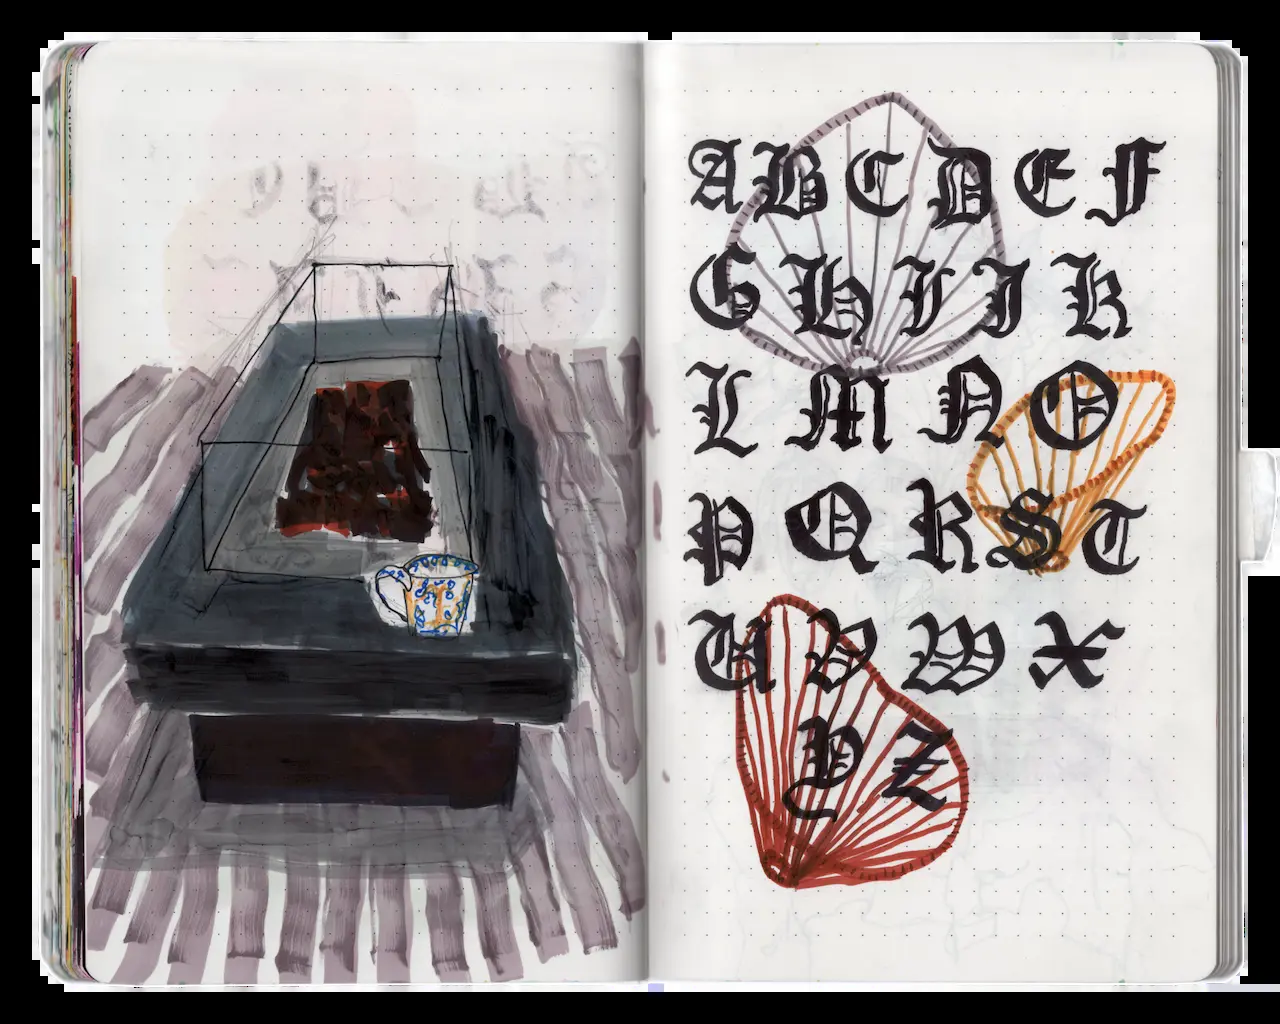 A B C D E F
G H I J K
L M N O
P Q R S T
U V W X
Y Z